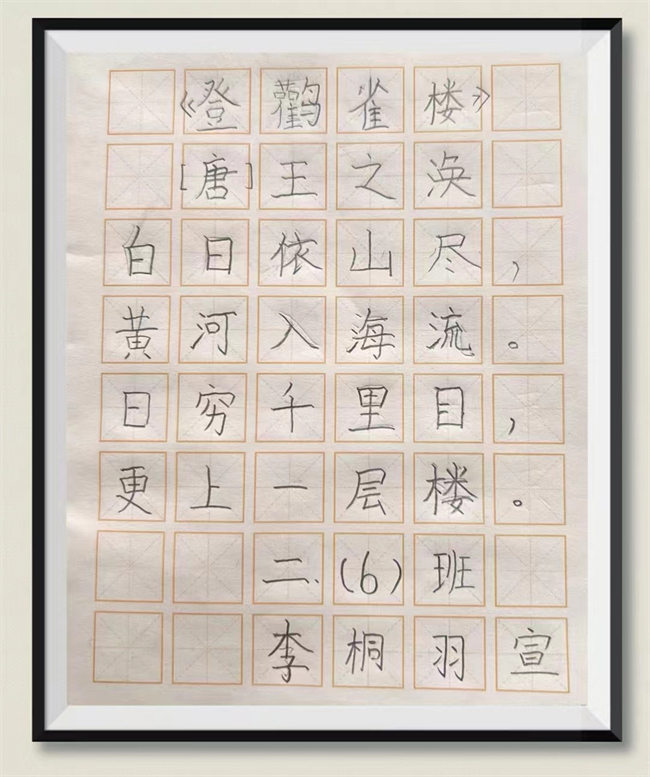 《登鹳雀楼》
[唐]王之涣
白日依山尽，
黄河入海流。
日穷千里目，
更上一层楼。
二、(6)班
李桐羽宣